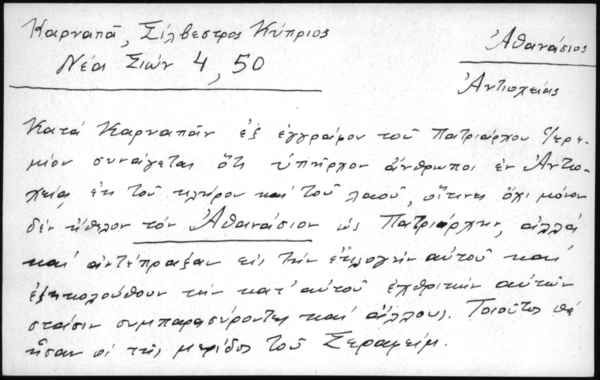 Καρναπᾶ, Σίλβεστρος Κύπριος
Νέα Σιών 4, 50
Ἀθανάσιος
Ἀντιοχείας
Κατά Καρναπᾶν ἐξ ἐγγράφου τοῦ Πατριάρχου Ἱερε-
μίου συνάγεται ὅτι ὑπῆρχον ἄνθρωποι ἐν Ἀντιο-
χείᾳ ἐκ τοῦ κλήρου καί τοῦ λαοῦ, οἵτινες ὄχι μόνον
δέν ἤθελον τόν Ἀθανάσιον ὡς Πατριάρχην, ἀλλά
καί ἀντέπραξαν εἰς τήν ἐκλογήν αὐτοῦ καί
ἐξηκολούθουν τήν κατ' αὐτοῦ ἐχθρικήν αὐτῶν
στάσιν συμπαρασύροντες καί ἄλλους. Τοιοῦτοι θά
ἦσαν οἱ τῆς μερίδος τοῦ Σεραφείμ.